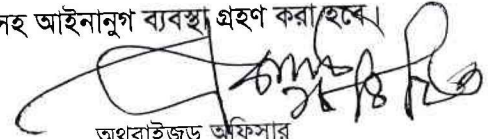 সহ আইনানুগ ব্যবস্থা গ্রহণ করা হবে।
অথরাইজড অফিসার